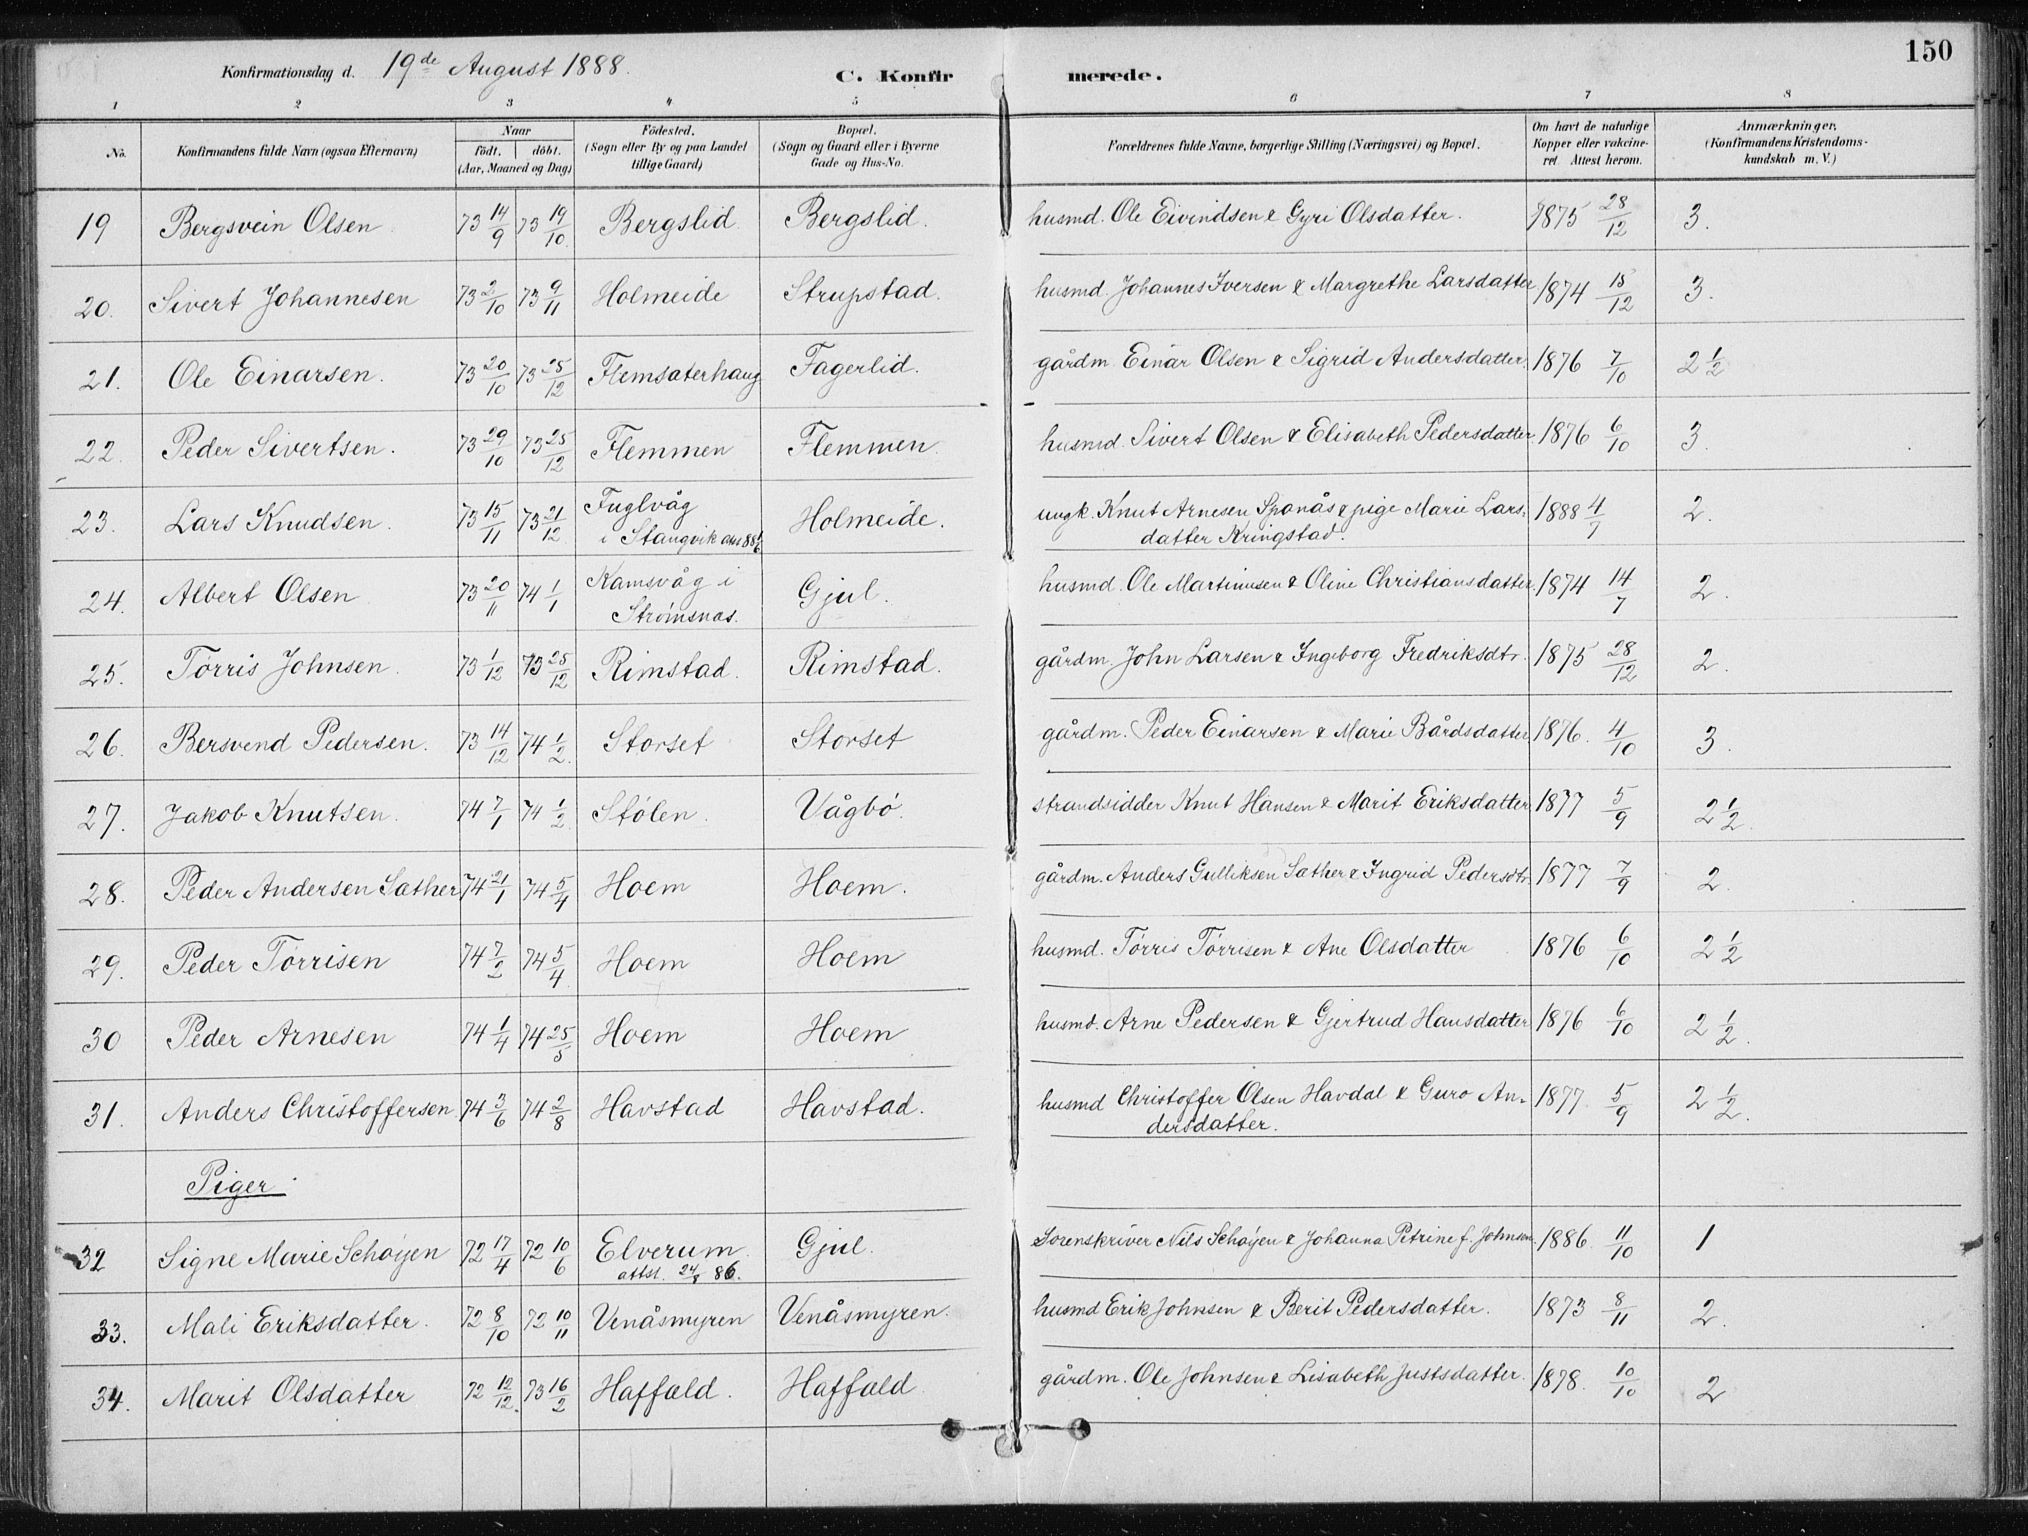 150
Konfirmationsdag d. 19de August 1888.
C. Konfir merede.
1 2 3 4 5 6 7 8
No. | Konfirmandens fulde Navn (ogsaa Efternavn) | Naar födt. döbt. (Aar, Maaned og Dag) | Födested. (Sogn eller By og paa Landet tillige Gaard) | Bopæl. (Sogn og Gaard eller i Byerne Gade og Hus-No. | Forældrenes fulde Navne, borgerlige Stilling (Næringsvei) og Bopæl. | Om havt de naturlige Kopper eller vakcineret Attest herom. | Anmærkninger. (Konfirmandens Kristendomskundskab m. V.)
19 Bergsvein Olsen 73 14/9 73 19/10. Bergslid Bergslid. husmd. Ole Eivindsen & Gyri Olsdatter. 1875 28/12 3.
20. Sivert Johannesen 73 2/10 73 9/11 Holmeide Strupstad. husmd. Johannes Iversen & Margrethe Larsdatter 1874 15/12 3.
21. Ole Einarsen. 73 20/10 73 25/12 Flemsæterhaug Fagerlid. gårdm. Einar Olsen & Sigrid Andersdatter. 1876 7/10 2 1/2
22. Peder Sivertsen. 73 29/10 73 25/12 Flemmen Flemmen. husmd. Sivert Olsen & Elisabeth Pedersdatter 1876 6/10 3.
23. Lars Knudsen. 73 15/11 73 21/12. Fuglvåg Holmeide. ungk. Knut Arnesen Spanås & pige Marie Lars- 1888 4/7 2.
i Stangvik datter Kringstad.
24. Albert Olsen 73 20/11 74 1/1 Kamsvåg i Gjul. husmd. Ole Martinusen & Oline Christiansdatter. 1874 14/7 2.
Strømsnas.
25. Tørris Johnsen. 73 1/12 73 25/12 Rimstad. Rimstad. gårdm. John Larsen & Ingeborg Fredriksdtr. 1875 28/12 2.
26. Bersvend Pedersen. 73 14/12 74 1/2. Storset Storset gårdm. Peder Einarsen & Marie Bårdsdatter 1876. 4/10 3.
27. Jakob Knutsen. 74 7/1 74 1/2. Stølen. Vågbø. strandsidder Knut Hansen & Marit Eriksdatter 1877 5/9 2 1/2.
28. Peder Andersen Sæther 74 21/1 74 5/4 Hoem Hoem. gårdm. Anders Gulliksen Sæther & Ingrid Pedersdtr. 1877 7/9 2.
29. Peder Tørrisen 74 7/2 74 5/4 Hoem Hoem husmd. Tørris Tørrisen & Ane Olsdatter 1876 6/10 2 1/2
30 Peder Arnesen 74 1/4 74 25/5 Hoem Hoem husmd. Arne Pedersen & Gjertrud Hansdatter 1876 6/10 2 1/2.
31. Anders Christoffersen 74 3/6 74 2/8 Havstad Havstad. husmd Christoffer Olsen Havdal & Guro An- 1877. 5/9 2 1/2.
dersdatter.
Piger.
32 Signe Marie Schøyen 72 17/4 72 10/6 Elverum. Gjul. Sorenskriver Nils Schøyen & Johanna Petrine f. Johnsen. 1886. 11/10 1
attst. 24/8 86.
33. Mali Eriksdatter. 72 8/10 72 10/11 Venåsmyren Venåsmyren. husmd Erik Johnsen & Berit Pedersdatter. 1873 8/11 2.
34. Marit Olsdatter 72 12/12. 73 16/2 Haffald. Haffald. gårdm. Ole Johnsen & Lisabeth Justsdatter. 1878. 10/10 2